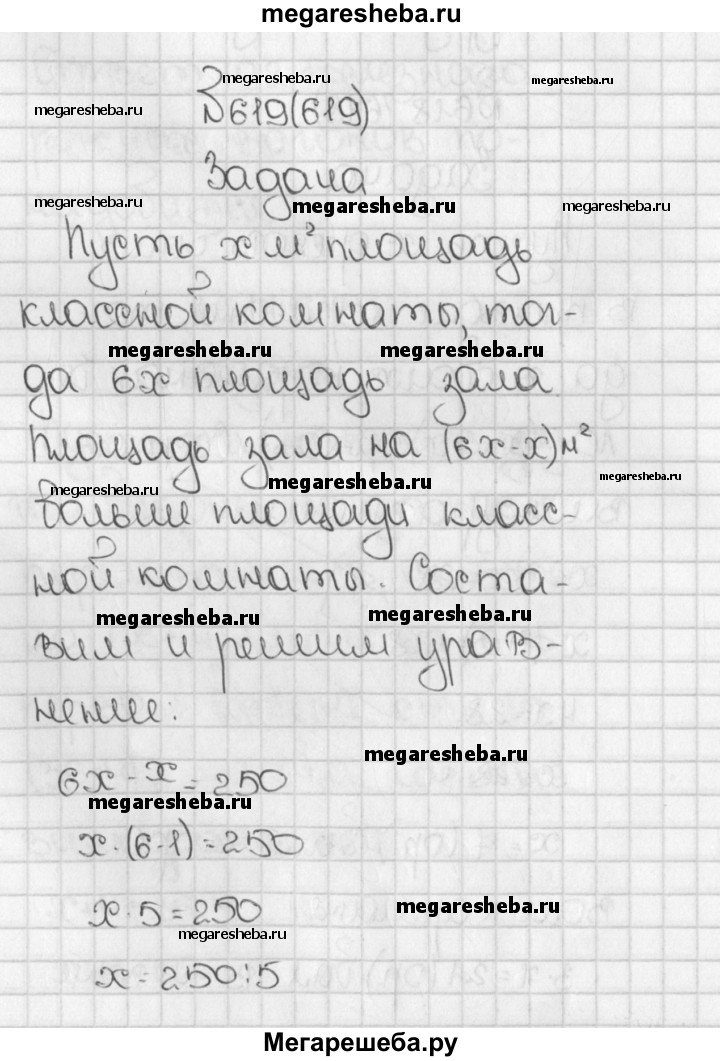 megaresheba.ru
megaresheba.ru
megaresheba.ru
megaresheba.ru
№619(619)
Задача
megaresheba.ru
megaresheba.ru
megaresheba.ru
Пусть x м² площадь
классной комнаты, тог-
megaresheba.ru
megaresheba.ru
да 6x площадь зала.
Площадь зала на (6x-x)м²
megaresheba.ru
megaresheba.ru
megaresheba.ru
больше площади класс-
ной комнаты. Соста-
megaresheba.ru
megaresheba.ru
вим и решим урав-
нение:
megaresheba.ru
6x - x = 250
megaresheba.ru
x·(6-1)=250
x·5=250
megaresheba.ru
megaresheba.ru
x=250:5
Мегарешеба.ру